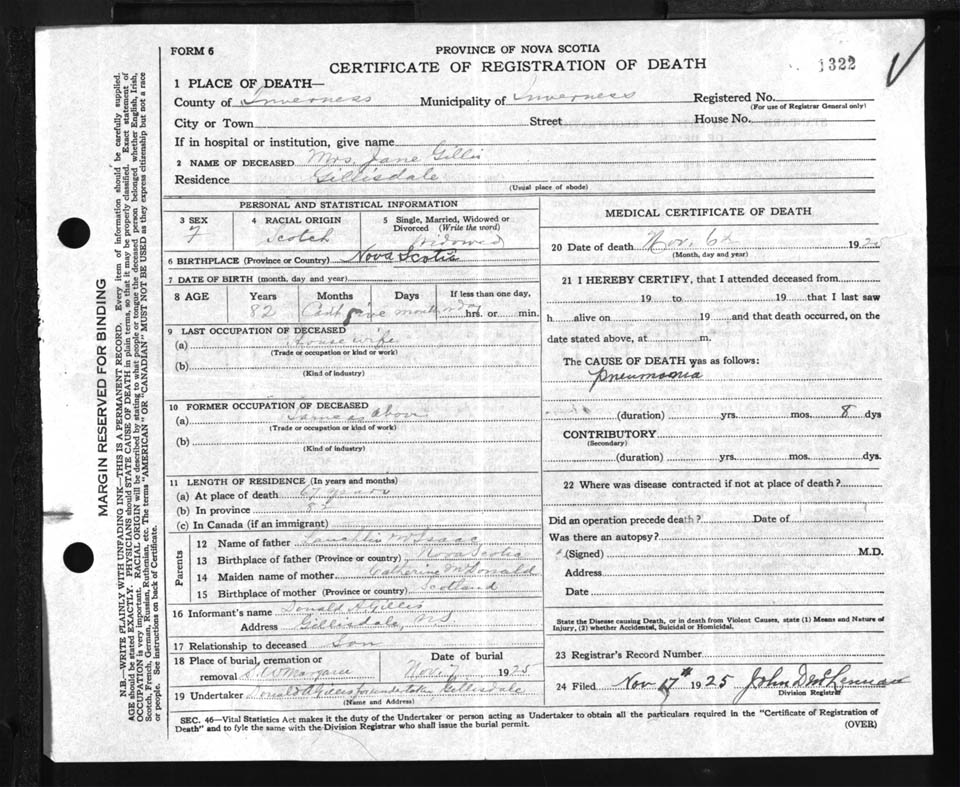 FORM 6
PROVINCE OF NOVA SCOTIA
CERTIFICATE OF REGISTRATION OF DEATH
1322
MARGIN RESERVED FOR BINDING
N.B.—WRITE PLAINLY WITH UNFADING INK—THIS IS A PERMANENT RECORD. Every item of information should be carefully supplied.
AGE should be stated EXACTLY. PHYSICIANS should STATE CAUSE OF DEATH in plain terms, so that it may be properly classified. Exact statement of
OCCUPATION is very important. RACIAL ORIGIN will be described by stating to what people or tongue the deceased person belonged whether English, Irish,
Scotch, French, German, Russian, Ruthenian, etc. The terms "AMERICAN" OR "CANADIAN" MUST NOT BE USED as they express citizenship but not a race
or people. See instructions on back of Certificate.
1 PLACE OF DEATH—
County of Inverness Municipality of Inverness Registered No.
(For use of Registrar General only)
City or Town Street House No.
If in hospital or institution, give name
2 NAME OF DECEASED Mrs. Jane Gillis
Residence Gillisdale
(Usual place of abode)
PERSONAL AND STATISTICAL INFORMATION
3 SEX 4 RACIAL ORIGIN 5 Single, Married, Widowed or
Divorced (Write the word)
F Scotch Widowed
6 BIRTHPLACE (Province or Country) Nova Scotia
7 DATE OF BIRTH (month, day and year)
8 AGE Years Months Days If less than one day,
82 five months hrs. or min.
9 LAST OCCUPATION OF DECEASED
(a) House wife
(Trade or occupation or kind or work)
(b)
(Kind of industry)
10 FORMER OCCUPATION OF DECEASED
(a) Same as above
(Trade or occupation or kind of work)
(b)
(Kind of industry)
11 LENGTH OF RESIDENCE (In years and months)
(a) At place of death years
(b) In province 82
(c) In Canada (if an immigrant)
Parents
12 Name of father Lauchlin McIsaac
13 Birthplace of father (Province or country) Nova Scotia
14 Maiden name of mother Catherine McDonald
15 Birthplace of mother (Province or country) Scotland
16 Informant's name Donald A Gillis
Address Gillisdale, N.S.
17 Relationship to deceased Son
18 Place of burial, cremation or Date of burial
removal S. W Margaree Nov. 7 1925
19 Undertaker Donald A Gillis undertaker Gillisdale
(Name and Address)
MEDICAL CERTIFICATE OF DEATH
20 Date of death Nov. 6th 1925
(Month, day and year)
21 I HEREBY CERTIFY, that I attended deceased from
19 to 19 that I last saw
h alive on 19 and that death occurred, on the
date stated above, at m.
The CAUSE OF DEATH was as follows:
pneumonia
(duration) yrs. mos. 8 dys
CONTRIBUTORY
(Secondary)
(duration) yrs. mos. dys.
22 Where was disease contracted if not at place of death?
Did an operation precede death? Date of
Was there an autopsy?
(Signed) M.D.
Address
Date
State the Disease causing Death, or in death from Violent Causes, state (1) Means and Nature of
Injury, (2) whether Accidental, Suicidal or Homicidal.
23 Registrar's Record Number
24 Filed Nov 17th 1925 John D McLennan
Division Registrar
SEC. 46—Vital Statistics Act makes it the duty of the Undertaker or person acting as Undertaker to obtain all the particulars required in the "Certificate of Registration of
Death" and to fyle the same with the Division Registrar who shall issue the burial permit. (OVER)